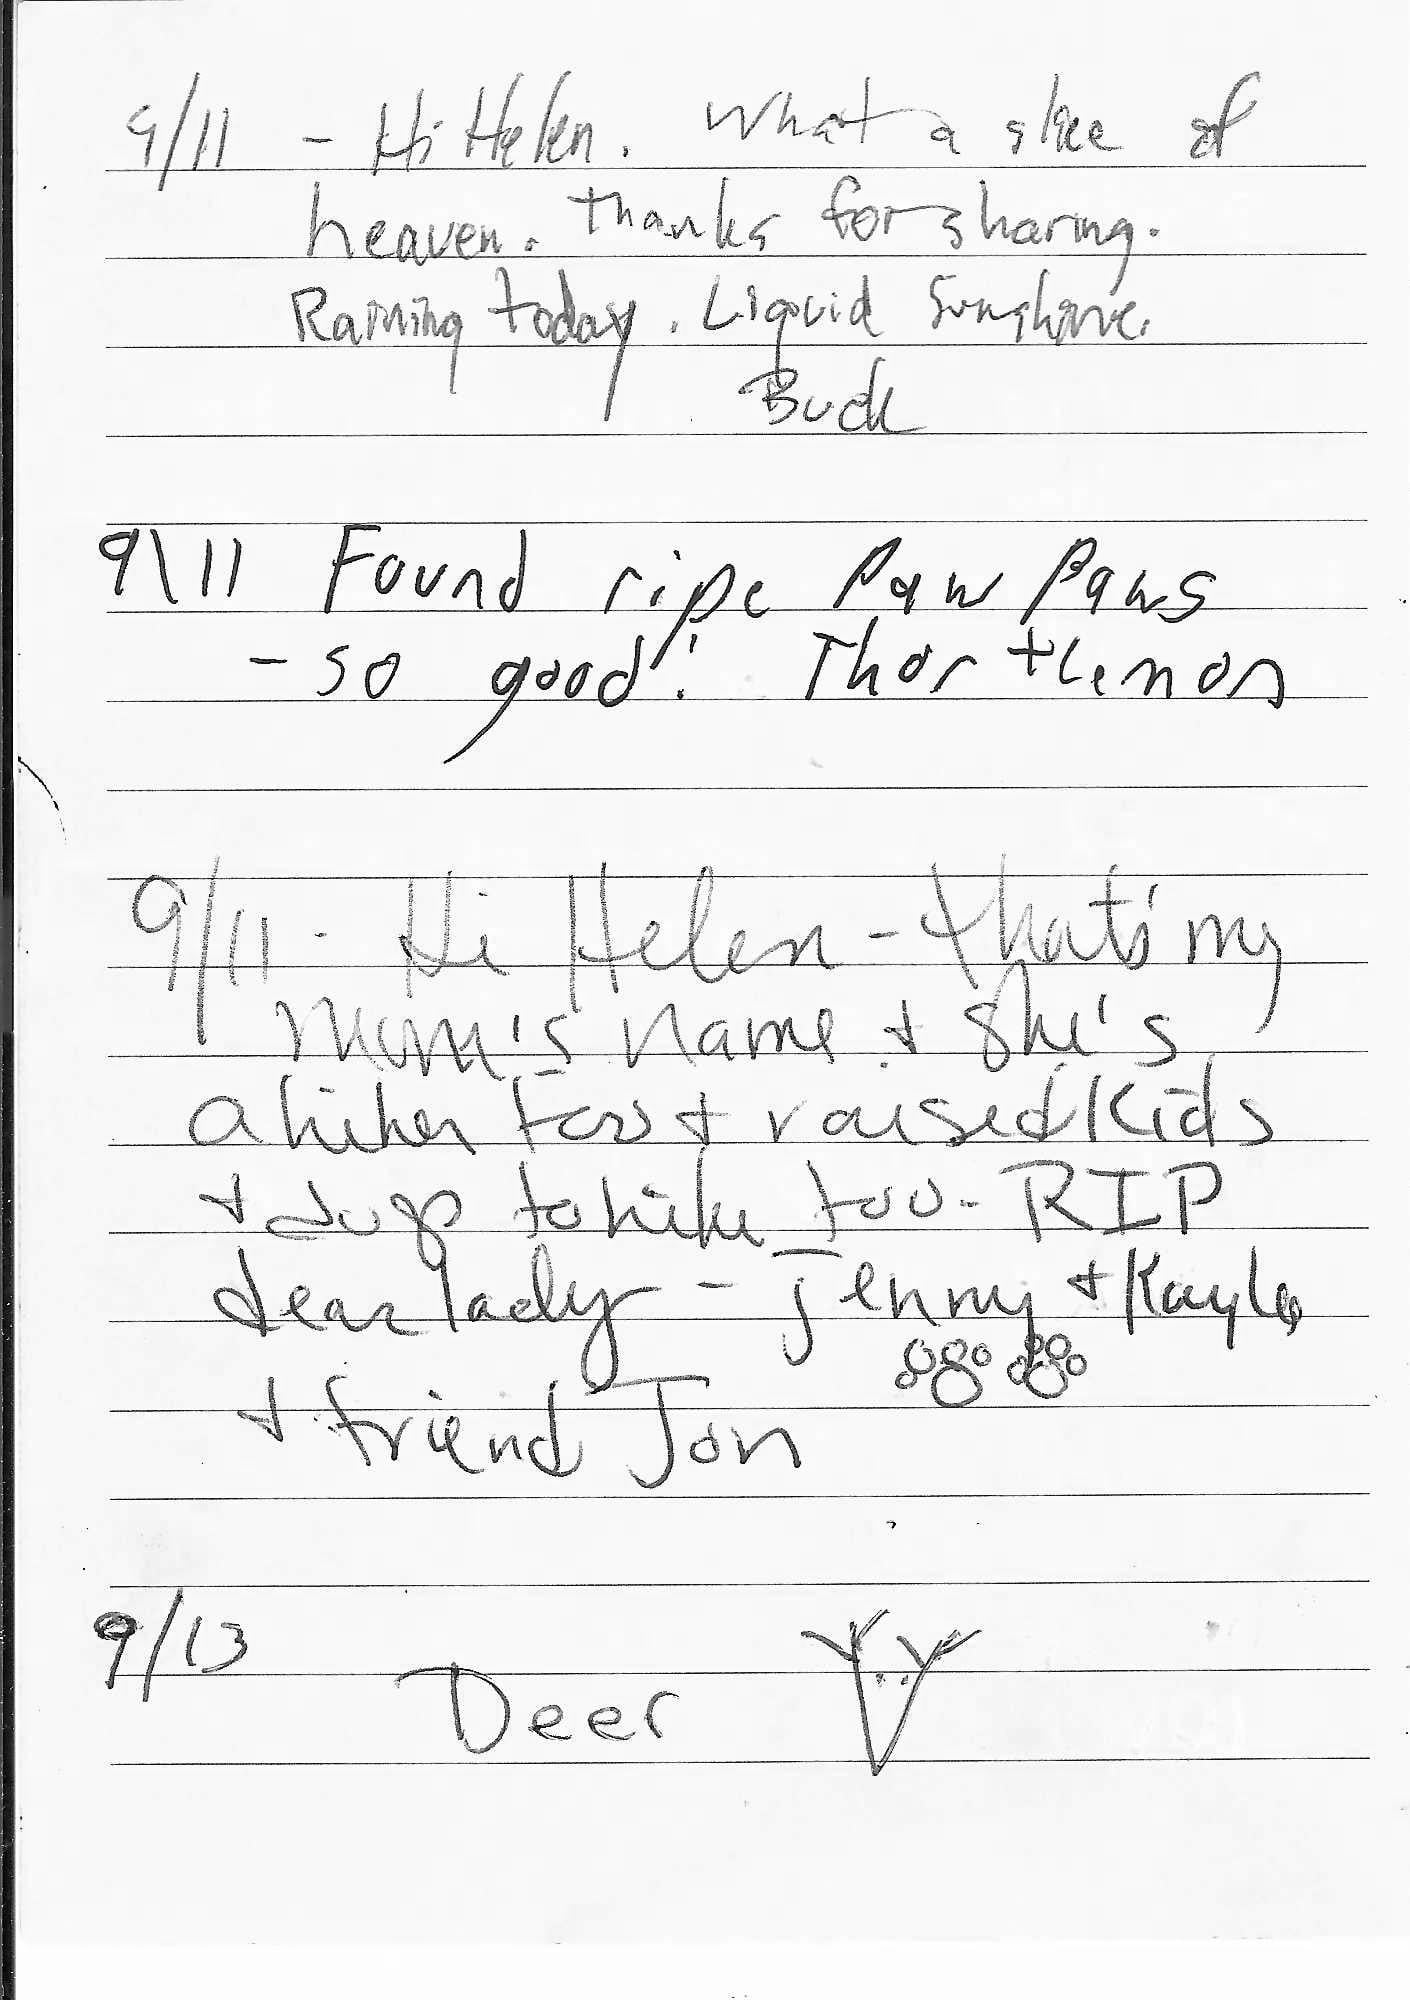 9/11 - Hi Helen. What a slice of
heaven. Thanks for sharing.
Raining today. Liquid Sunshine.
Buck
9\11 Found ripe Paw Paws
- so good! Thor + Lemon
9/11 - Hi Helen - that's my
mom's name + she's
a hiker too + raised kids
+ dogs to hike too - RIP
dear lady - Jenny + Kayla
+ friend Jon
9/13
Deer